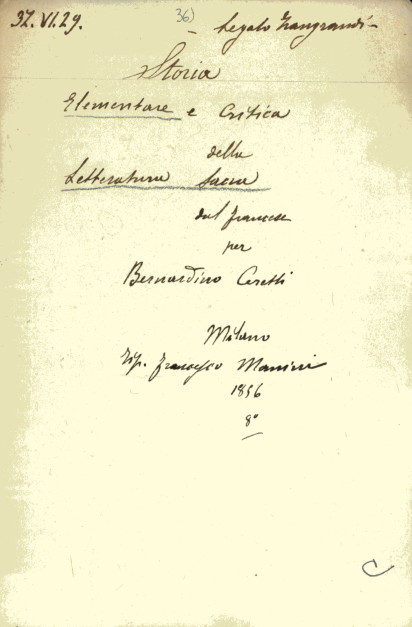 37.VI.29. 36) - Legato Zangrandi -
Storia
Elementare e Critica
della
Letteratura Sacra
dal francese
per
Bernardino Ceretti
Milano
Tip. Francesco Manini
1856
8°
C